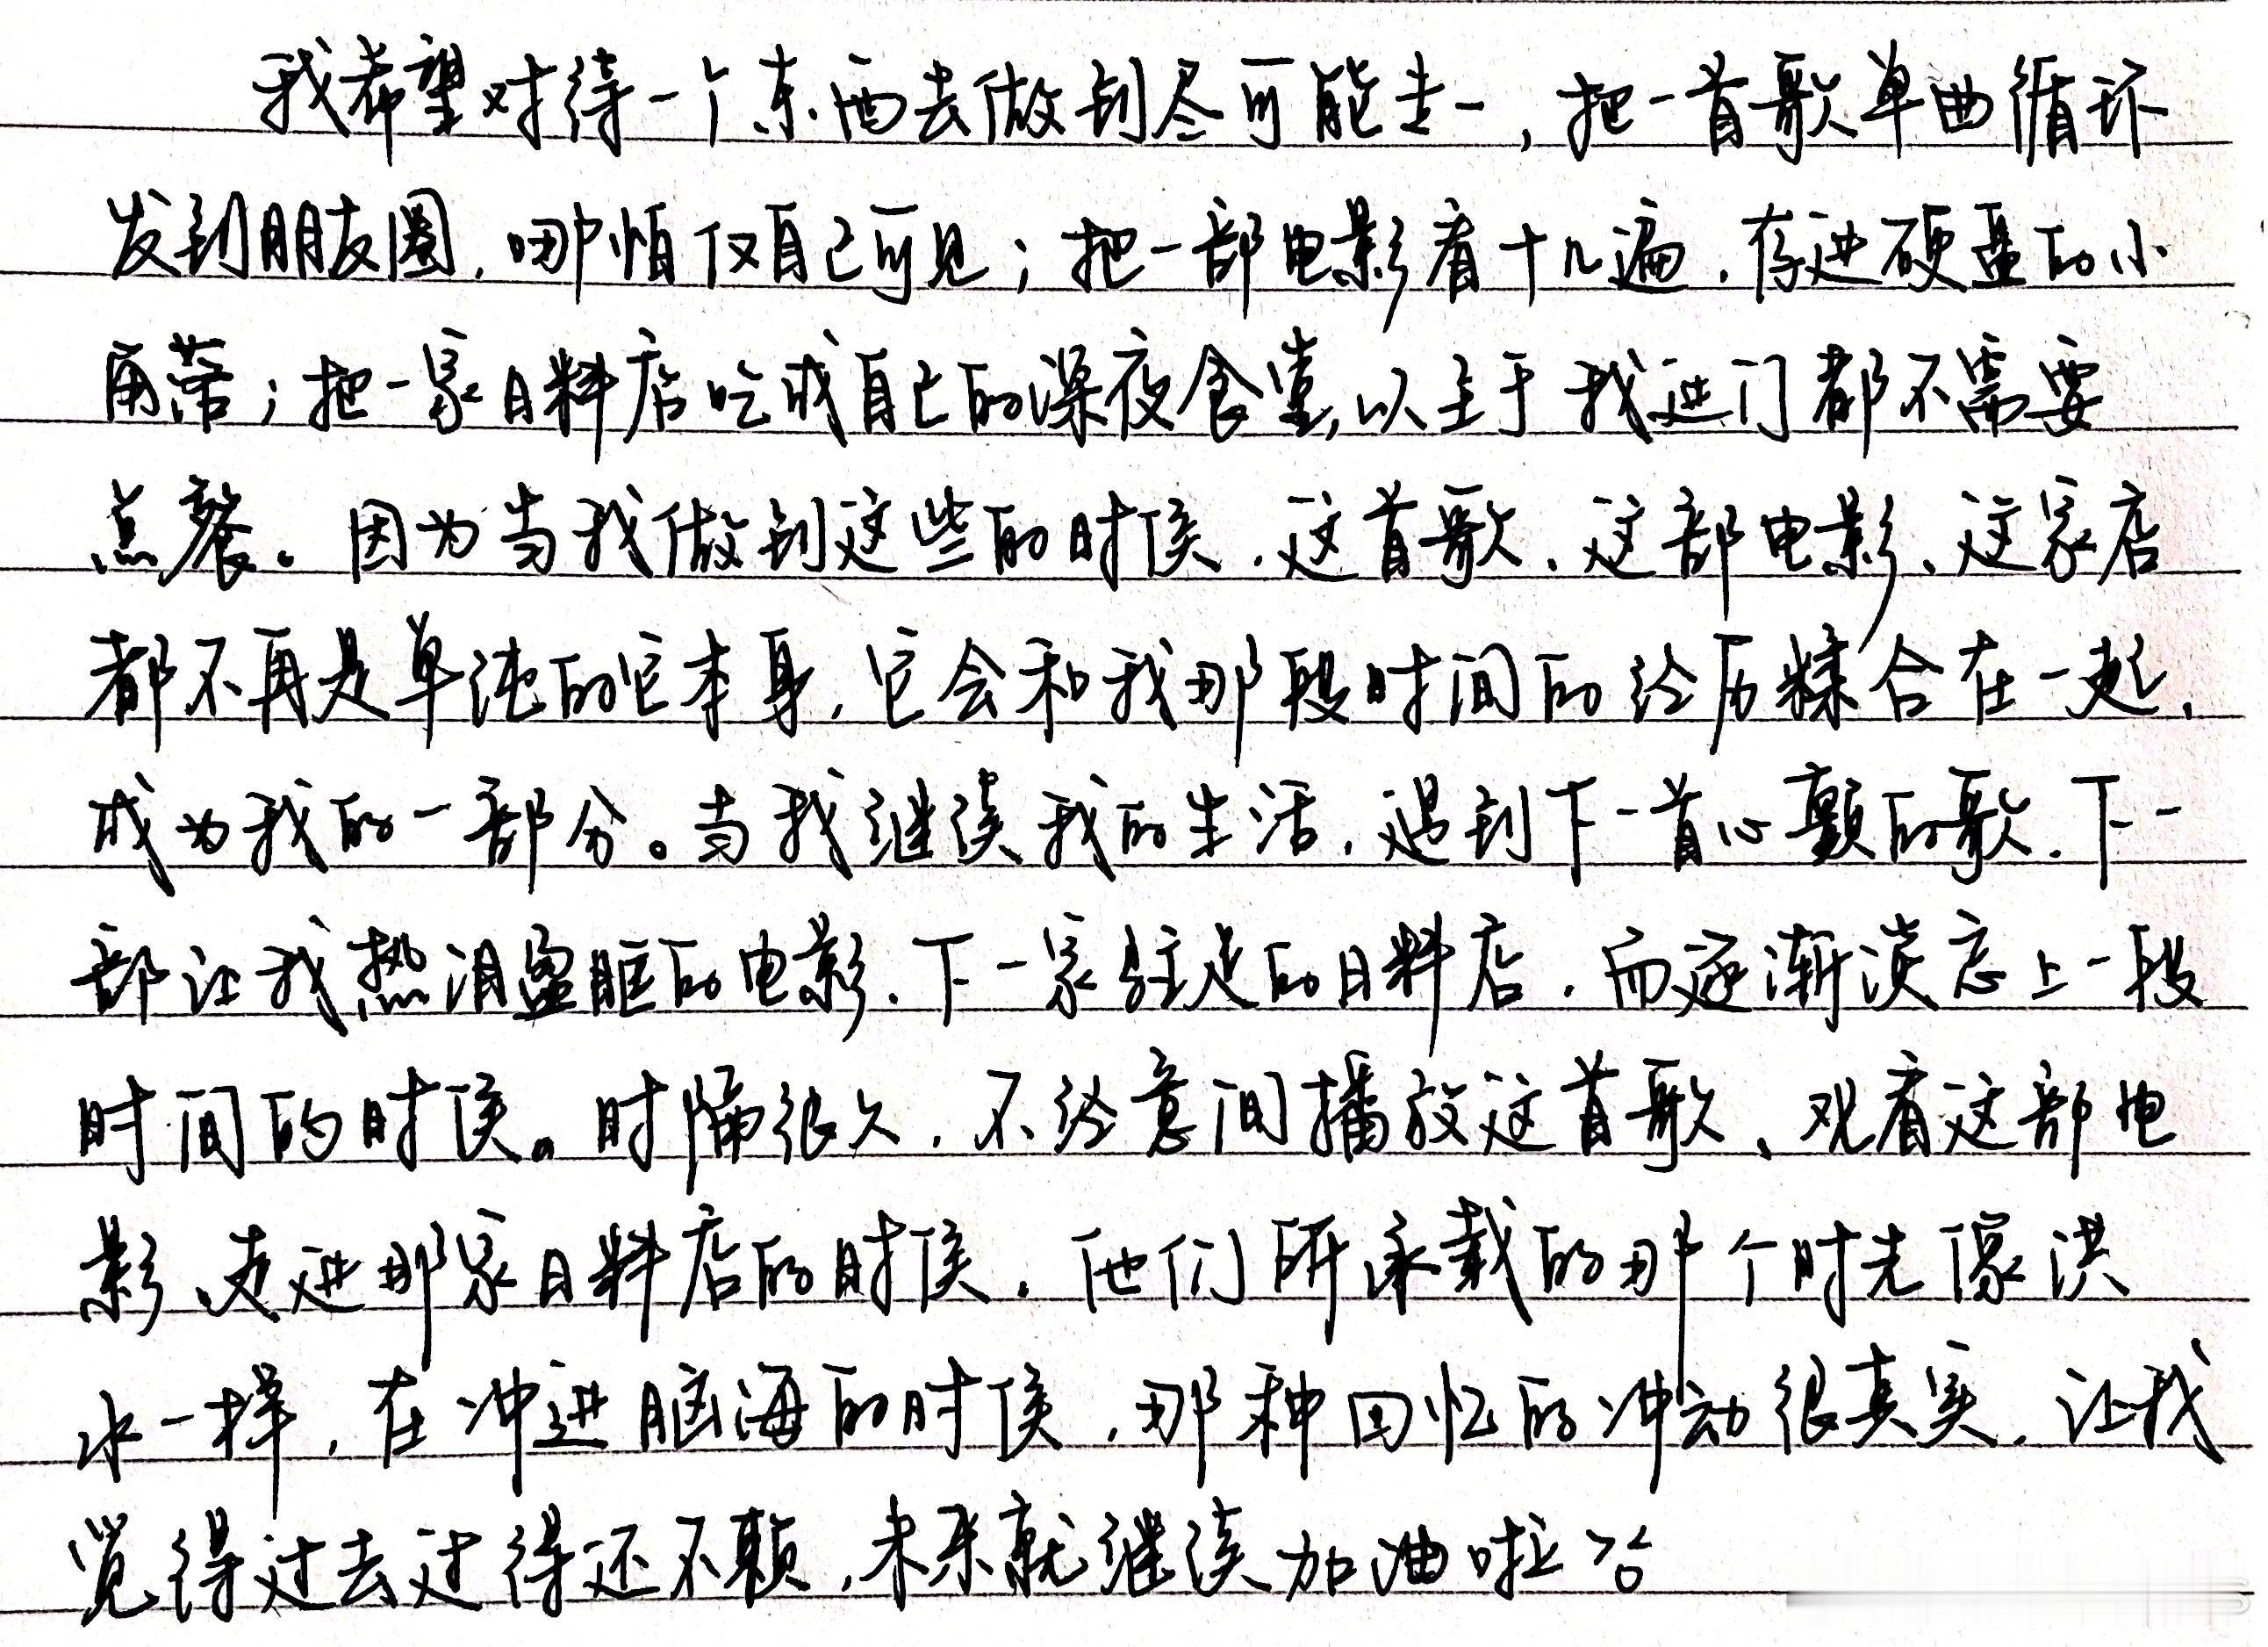 我希望对待一个东西去做到尽可能专一，把一首歌单曲循环
发到朋友圈，哪怕仅自己可见；把一部电影看十几遍，存进硬盘的小
角落；把一家日料店吃成自己的深夜食堂，以至于我进门都不需要
点餐。因为当我做到这些的时侯，这首歌、这部电影、这家店
都不再是单纯的它本身，它会和我那段时间的经历糅合在一起，
成为我的一部分。当我继续我的生活，遇到下一首心颤的歌、下一
部让我热泪盈眶的电影、下一家驻足的日料店，而逐渐淡忘上一段
时间的时侯。时隔很久，不经意间播放这首歌、观看这部电
影、走进那家日料店的时侯，他们所承载的那个时光像洪
水一样，在冲进脑海的时侯，那种回忆的冲动很真实，让我
觉得过去过得还不赖，未来就继续加油啦